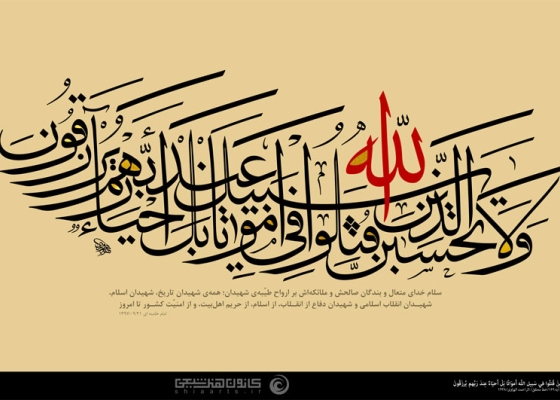 ولا تحسبن الذین قتلوا فی سبیل الله امواتا بل احیاء عند ربهم یرزقون
سلام خدای متعال و بندگان صالحش و ملائکه‌اش بر ارواح طیّبه‌ی شهیدان؛ همه‌ی شهیدان تاریخ، شهیدان اسلام،
شهیدان انقلاب اسلامی و شهیدان دفاع از انقلاب، از اسلام، از حریم اهل‌بیت، و از امنیّت کشور تا امروز
کانون هنر شیعی
shiaarts.ir